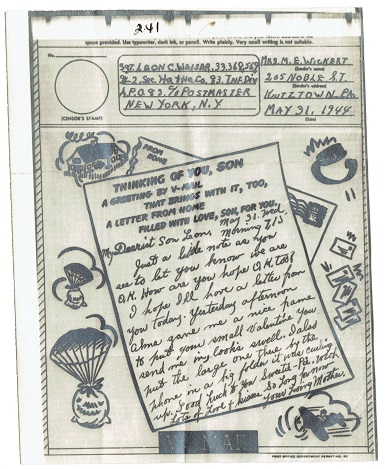 241
space provided. Use typewriter, dark ink, or pencil. Write plainly. Very small writing is not suitable.
No.
(CENSOR'S STAMP)
SGT. LEON C. WEISER, 33,368,569
Hq + Hq Co. 83. INF. DIV
A.P.O. 83. % POSTMASTER
NEW YORK, N.Y
MRS. M. E. WICKERT
(Sender's name)
205 NOBLE ST.
(Sender's address)
KUTZTOWN, PA.
MAY 31, 1944
(Date)
FROM HOME
THINKING OF YOU, SON
A GREETING BY V-MAIL
THAT BRINGS WITH IT, TOO,
A LETTER FROM HOME
FILLED WITH LOVE, SON, FOR YOU.
May 31. Wed.
My Dearest Son Leon, Morning 7:15
Just a little note as you
see to let you know we are
O.K. How are you hope O.K. too
I hope I'll have a letter from
you today. Yesterday afternoon
Alma gave me a nice frame
to put your small Valentine you
send me in, looks swell. I also
put the large one there by the
phone in a big folder it was curling
up, Good luck to you Sweets. Pa.
Lots of Love + kisses So Long for now
Your Loving Mother.
MAIL
POST OFFICE DEPARTMENT PERMIT NO.